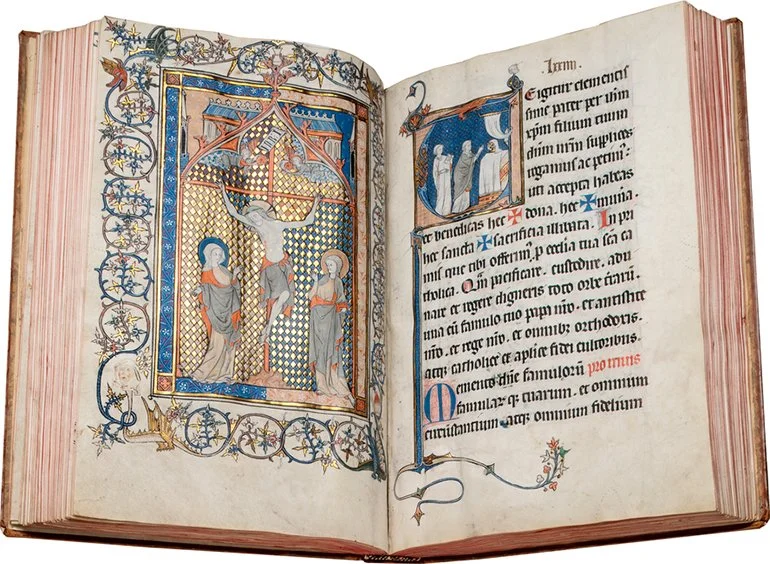 Te igitur clementis
sime pater per ihm
xpm filium tuum
dnm nrm supplices
rogamus ac petim⁹:
uti accepta habeas
et benedicas hec ✠ dona. hec ✠ munera.
hec sancta ✠ sacrificia illibata. In pri
mis que tibi offerim⁹ p ecclia tua sca ca
tholica. Qm pacificare. custodire. adu
nare et regere digneris toto orbe
una cū famulo tuo papa nro .et antistite
nro .et rege nro .et omnibꝫ orthodoxis.
atqꝫ catholice et aplice fidei cultoribus
Memento dne famulorū pro viuis
famularūqꝫ tuarum. et omnium
circūstancium. atqꝫ omnium fidelium